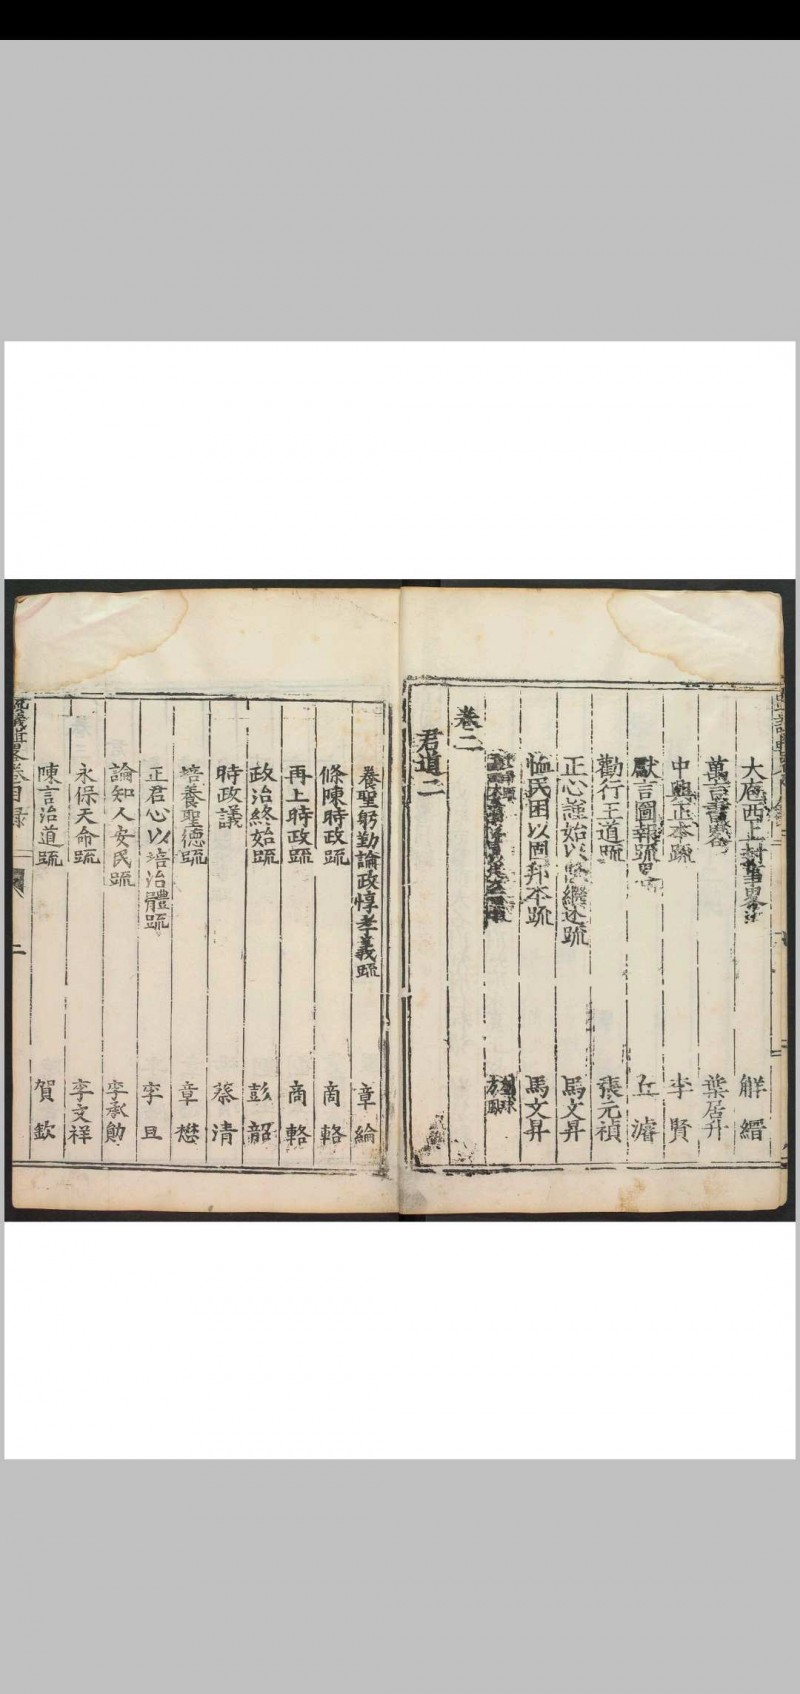 大庖西上封事畧 解縉
萬言書畧 葉居升
中興正本疏 李賢
獻言圖報疏 丘濬
勸行王道疏 張元禎
正心謹始以 繼述疏 馬文昇
恤民困以固邦本疏 馬文昇
卷二
君道二
養聖躬勤論政惇孝義疏 章綸
條陳時政疏 商輅
再上時政疏 商輅
政治終始疏 彭韶
時政議 蔡清
培養聖德疏 章懋
正君心以培治體疏 李旦
論知人安民疏 李承勛
永保天命疏 李文祥
陳言治道疏 賀欽
疏議輯畧卷目録 二